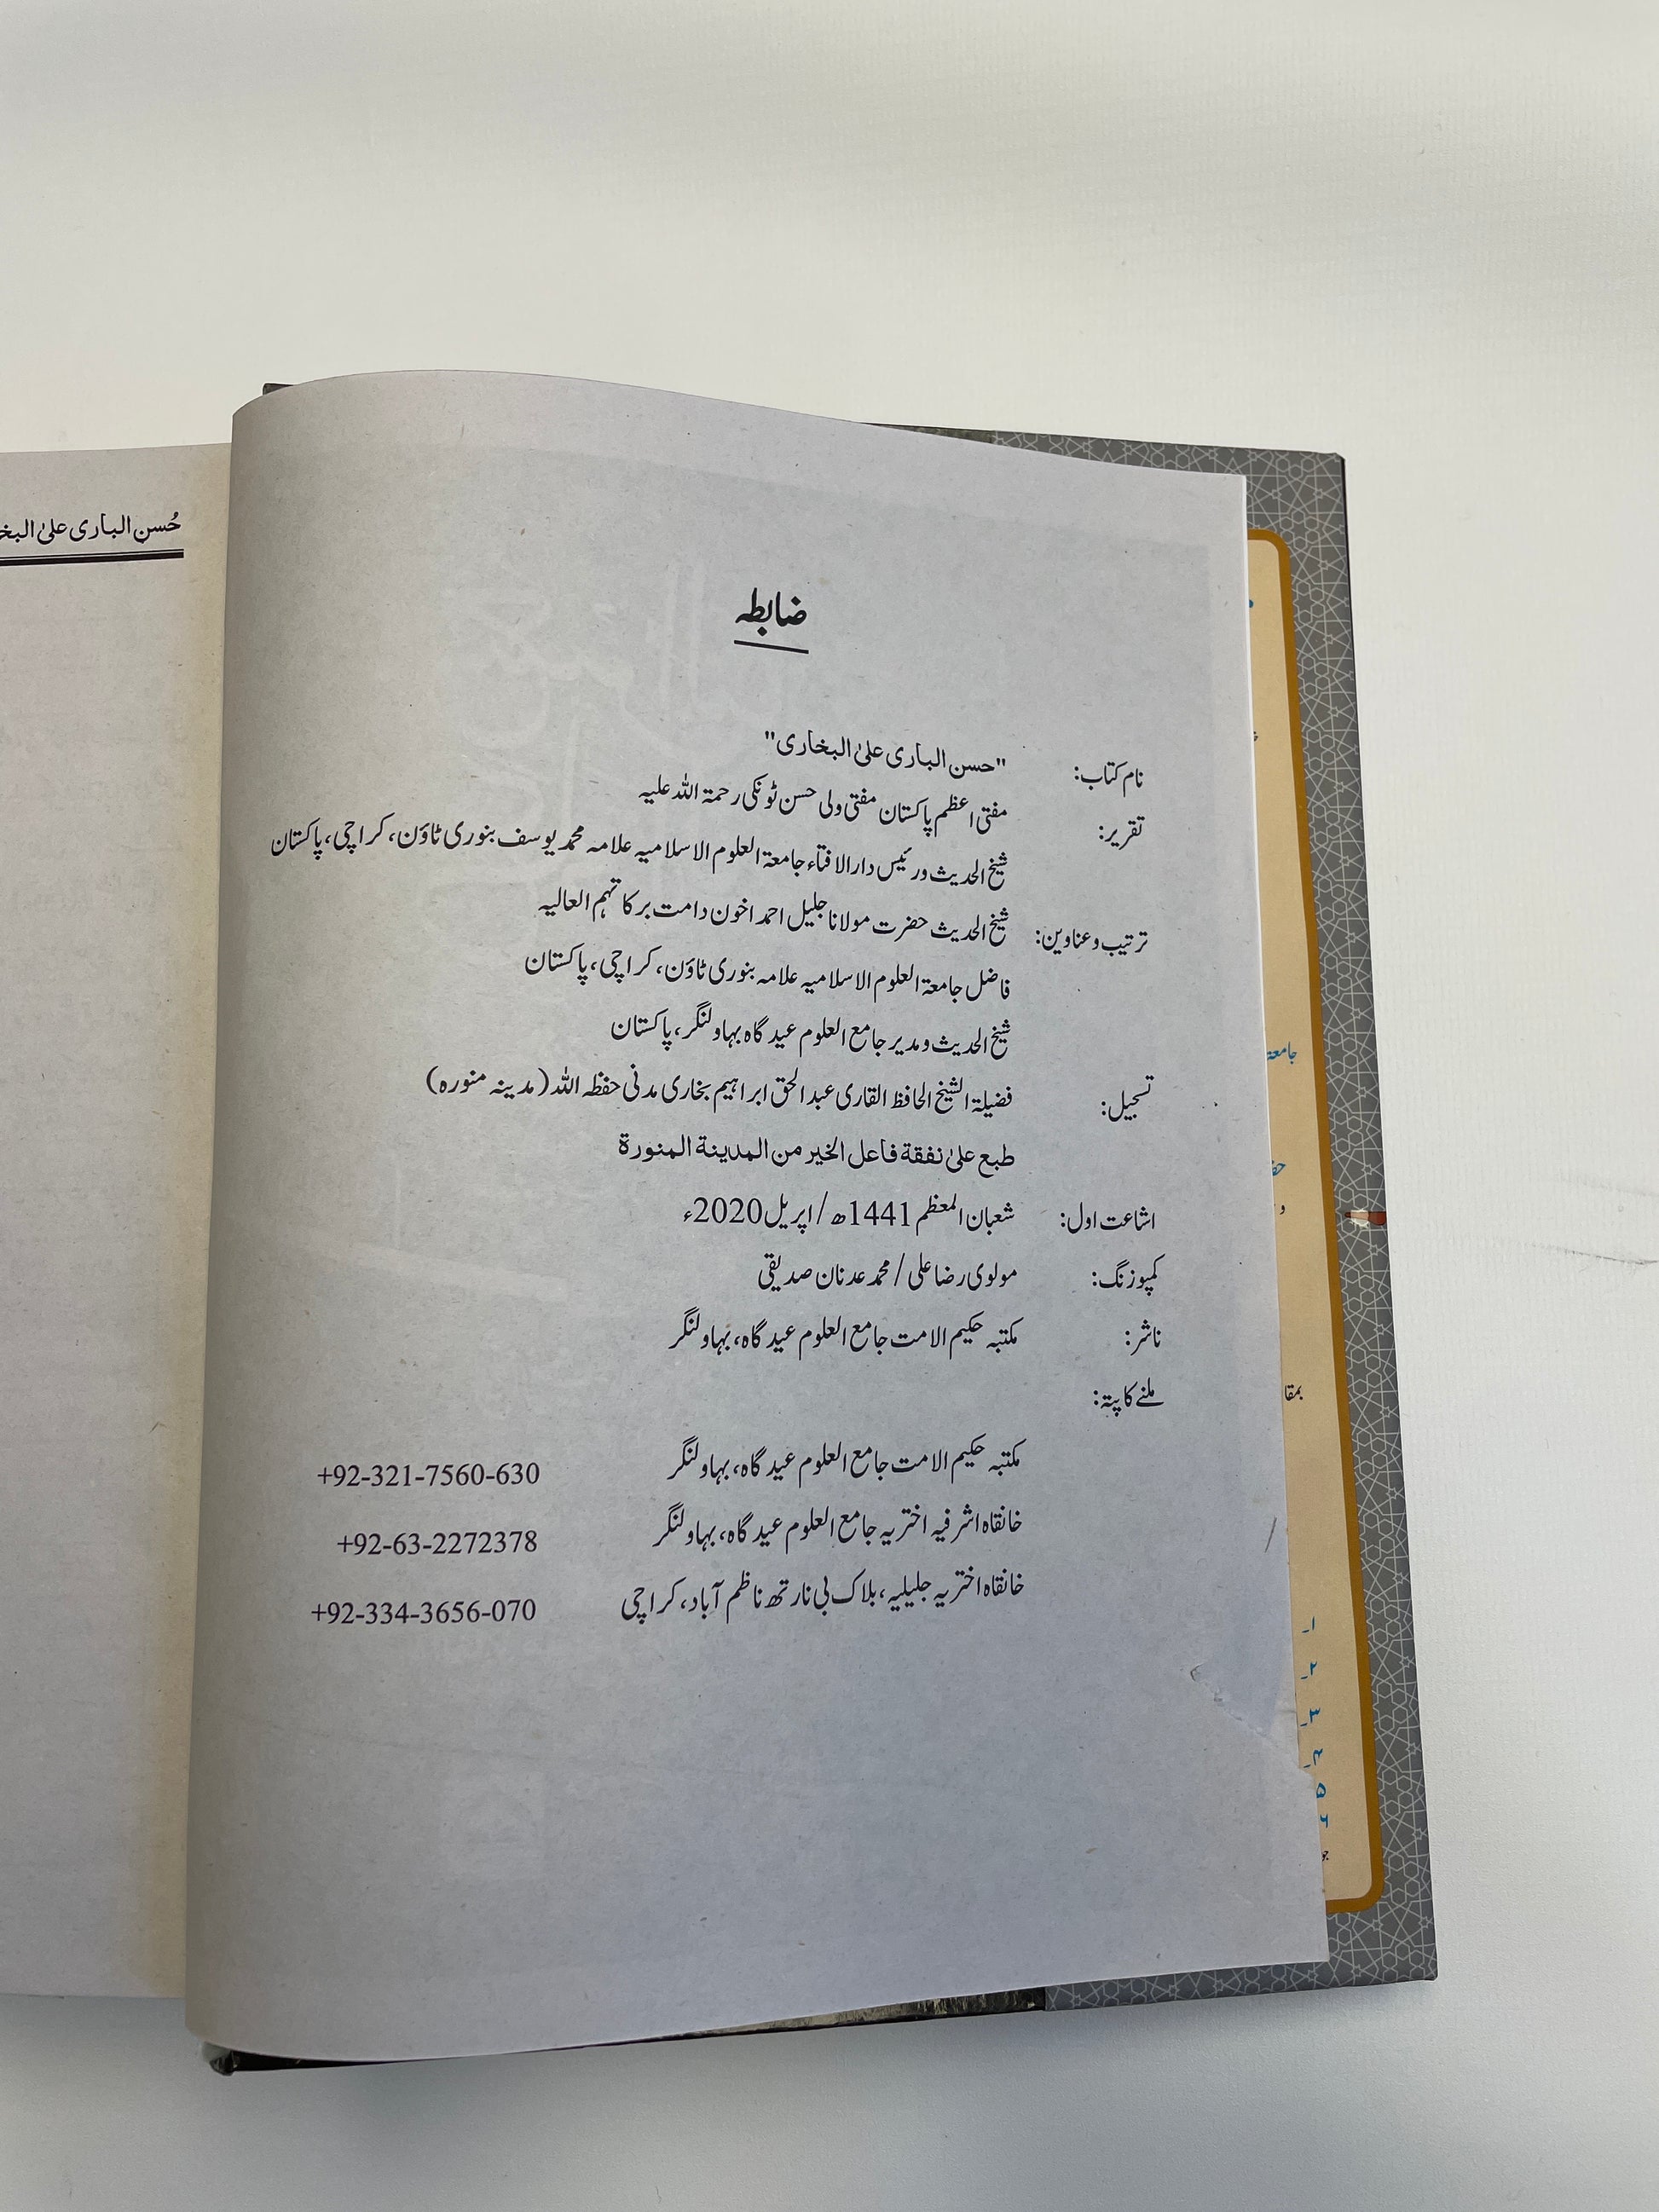 حُسن الباری علیٰ
ضابطہ
نام کتاب: "حسن الباری علیٰ البخاری"
تقریر: مفتی اعظم پاکستان مفتی ولی حسن ٹونکی رحمۃ اللہ علیہ
شیخ الحدیث ورئیس دارالافتاء جامعۃ العلوم الاسلامیہ علامہ محمد یوسف بنوری ٹاؤن، کراچی، پاکستان
ترتیب وعناوین: شیخ الحدیث حضرت مولانا جلیل احمد اخون دامت برکاتہم العالیہ
فاضل جامعۃ العلوم الاسلامیہ علامہ بنوری ٹاؤن، کراچی، پاکستان
شیخ الحدیث ومدیر جامع العلوم عیدگاہ بہاولنگر، پاکستان
تسجیل: فضیلۃ الشیخ الحافظ القاری عبدالحق ابراہیم بخاری مدنی حفظہ اللہ (مدینہ منورہ)
طبع علیٰ نفقة فاعل الخير من المدينة المنورة
اشاعت اول: شعبان المعظم 1441ھ/اپریل 2020ء
کمپوزنگ: مولوی رضا علی/محمد عدنان صدیقی
ناشر: مکتبہ حکیم الامت جامع العلوم عیدگاہ، بہاولنگر
ملنے کا پتہ:
مکتبہ حکیم الامت جامع العلوم عیدگاہ، بہاولنگر +92-321-7560-630
خانقاہ اشرفیہ اختریہ جامع العلوم عیدگاہ، بہاولنگر +92-63-2272378
خانقاہ اختریہ جلیلیہ، بلاک بی نارتھ ناظم آباد، کراچی +92-334-3656-070
جامعۃ
۱۔
۲۔
۳۔
۴۔
۵
۶